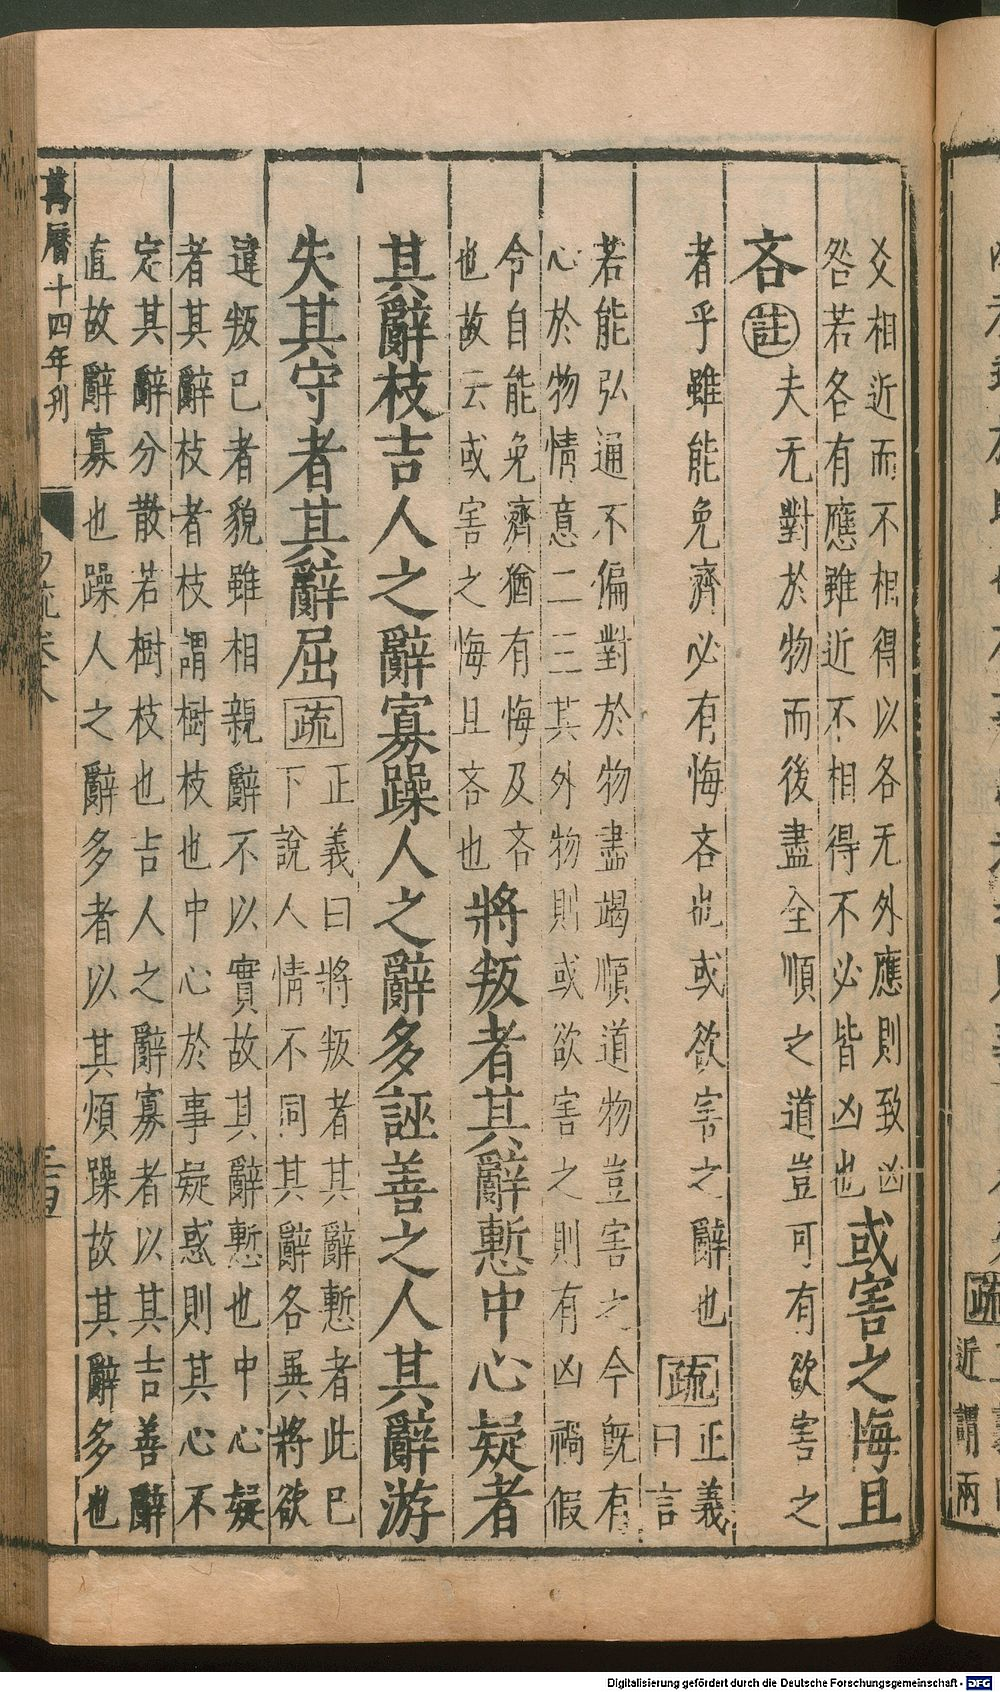 疏
近謂兩
爻相近而不相得以各无外應則致凶
咎若各有應雖近不相得不必皆凶也
或害之悔且
吝註夫无對於物而後盡全順之道豈可有欲害之
者乎雖能免濟必有悔吝也或欲害之辭也疏正義
曰言
若能弘通不偏對於物盡竭順道物豈害之今既有
心於物情意二三其外物則或欲害之則有凶禍假
令自能免濟猶有悔及吝
也故云或害之悔且吝也
將叛者其辭慙中心疑者
其辭枝吉人之辭寡躁人之辭多誣善之人其辭游
失其守者其辭屈疏正義曰將叛者其辭慙者此已
下說人情不同其辭各異將欲
違叛已者貌雖相親辭不以實故其辭慙也中心疑
者其辭枝者枝謂樹枝也中心於事疑惑則其心不
定其辭分散若樹枝也吉人之辭寡者以其吉善辭
直故辭寡也躁人之辭多者以其煩躁故其辭多也
萬曆十四年刊
Digitalisierung gefördert durch die Deutsche Forschungsgemeinschaft - DFG